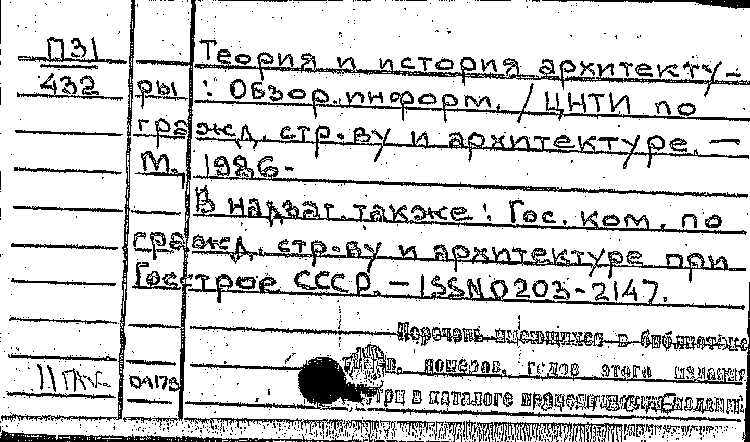 П31
432
Теория и история архитекту-
ры : Обзор. информ. / ЦНТИ по
гражд. стр-ву и архитектуре. —
М., 1986-
В надзаг. также : Гос. ком. по
гражд. стр-ву и архитектуре при
Госстрое СССР. — ISSN 0203-2147.
Перечень имеющихся в библиотеке
номеров, годов этого издания
в каталоге